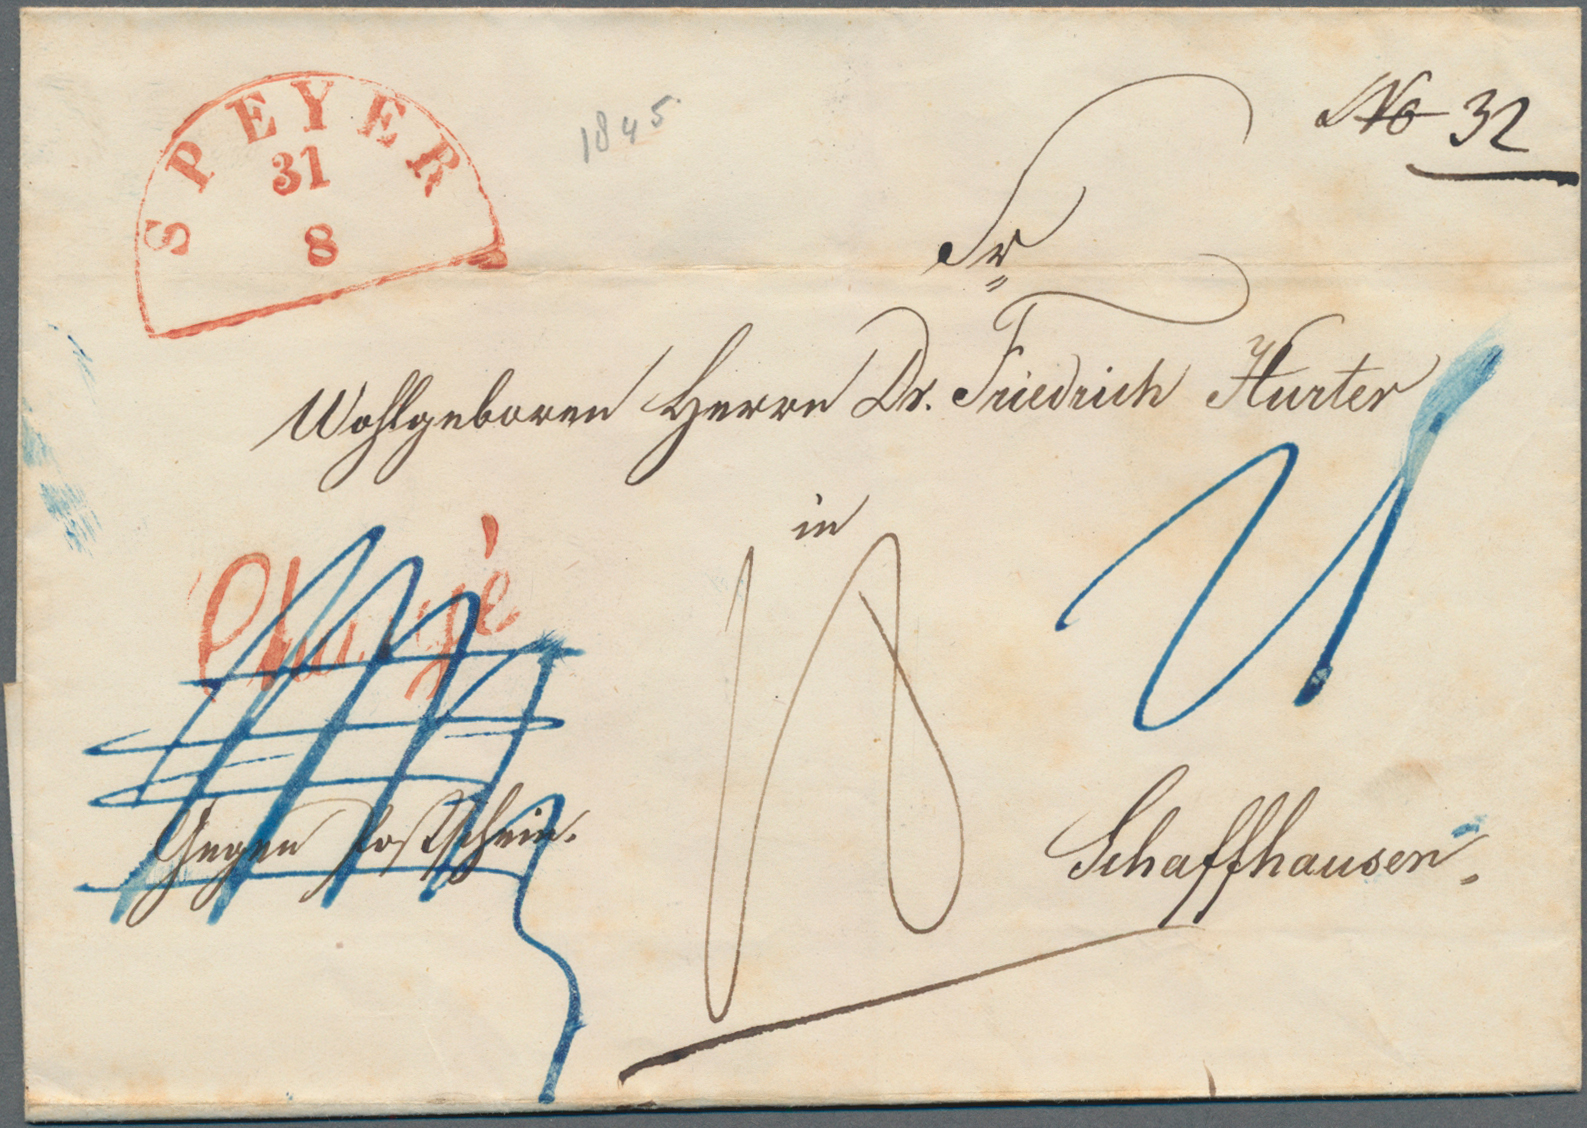 SPEYER
31
8
1845
No 32
Sr
Wohlgeboren Herrn Dr. Friedrich Hurter
in
Chargé
18
21
Gegen Postschein.
Schaffhausen.